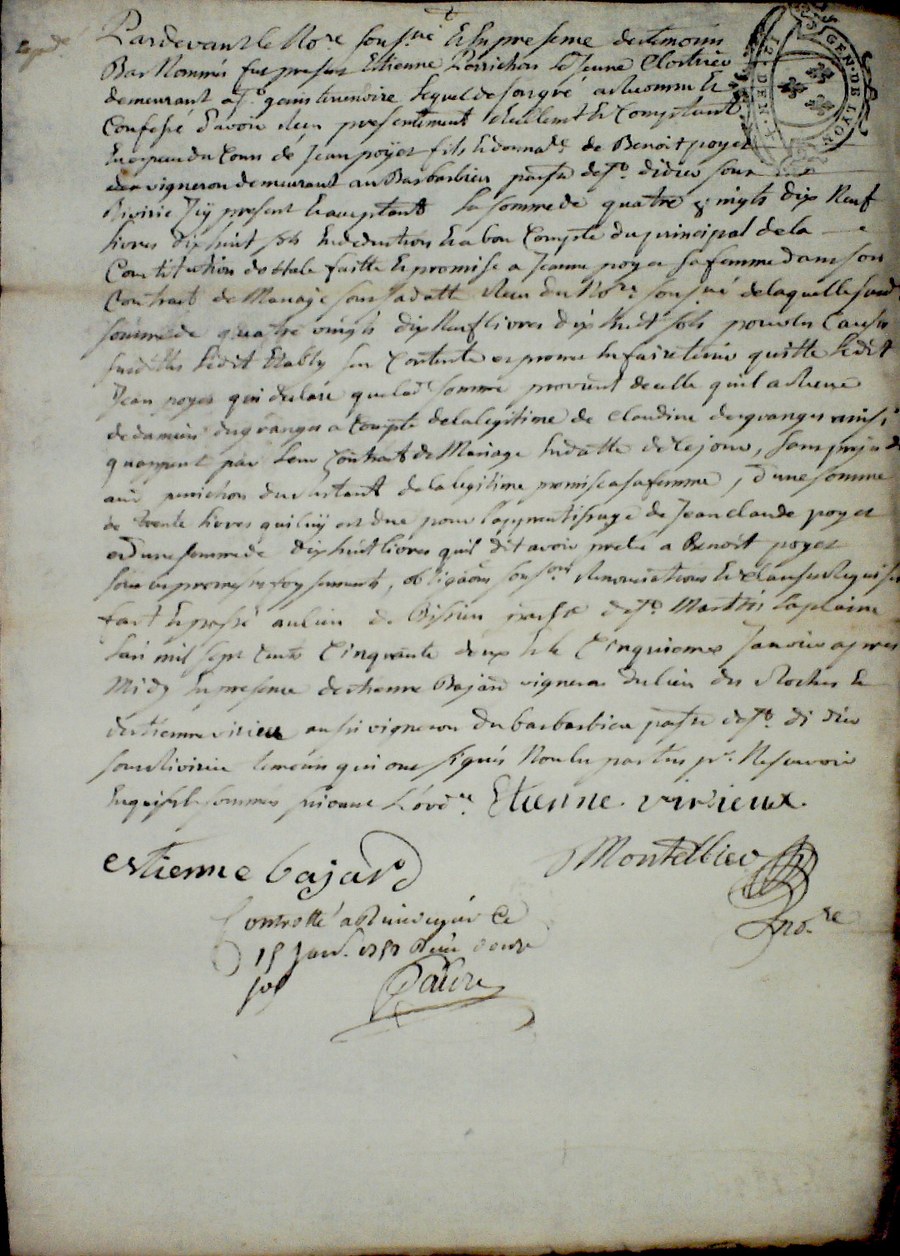 Pardevant le No.re sousné Et En presence des temoins
Bas Nommés fut present Etienne Perrichon Le Jeune
demeurant a St. genis terrenoire Lequel de son gré a Reconnu Et
Confessé D'avoir Reçu presentement Reellement Et Comptant
de Jean poÿet fils Et donnat.re de Benoit poyet
vigneron demeurant au Barbarbieu parsse de St. didier sous
Rivirie Icy present Et acceptant La somme de quatre vingts dix Neuf
livres dix huit sols En deduction Et a bon Compte du principal de la
Constitution dottale faitte Et promise a Jeanne poyet sa femme dans son
Contrat de Mariage sous sa datte Reçu du No.re sousné de laquelle susd
somme de quatre vingts dix Neuf livres dix huit sols pour les Causes
susdittes Ledit Etably se Contente et promet En faire tenir quitte Ledit
Jean poyet qui declare que lad. somme provient de celle qu'il a Receue
de damien desgranges a Compte de la legitime de Claudine desgranges ainsi
qu'appert par Leur Contrat de Mariage En datte de ce jour, sans prejudice
aud. perrichon du Restant de la legitime promise a sa femme, d'une somme
de trente livres qui luy est due pour l'apprentissage de Jean claude poyet
et d'une somme de dix huit livres qu'il dit avoir preté a Benoit poyet
sous les promesses foy serments, obligaons sousons Renonciations Et clauses Requises
fait Et passé au lieu de Bissieu parsse de St. Martin Laplaine
L'an mil sept cents Cinquante deux Et le Cinquieme Janvier apres
Midy En presence d'estienne Bajard vigneron du lieu des Roches Et
d'estienne virieu aussi vigneron du barbarbieu parsse de St. didier
sous Rivirie temoins qui ont signés Non les parties pr. Ne sçavoir
Enquis Et sommés suivant L'ord.ce Etienne . virieux.
estienne bajard
Montellier
no.re
Controllé a Rivedegier Ce
15 Janv. 1752 Reçu douze
sols